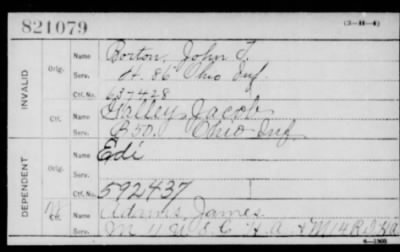 821079
(3—H—4)
INVALID
Orig.
Name Borton, John T.
Serv. H. 86 Ohio Inf.
Ctf. No. 637428
Ctf.
Name Halley, Jacob
Serv. B 50. Ohio Inf
DEPENDENT
Orig.
Name Edi
Serv.
Ctf. No. 592437
Ctf.
Name Adams, James
Serv. M 4 U.S.C. H.A. & M 14 R.I. H.A.